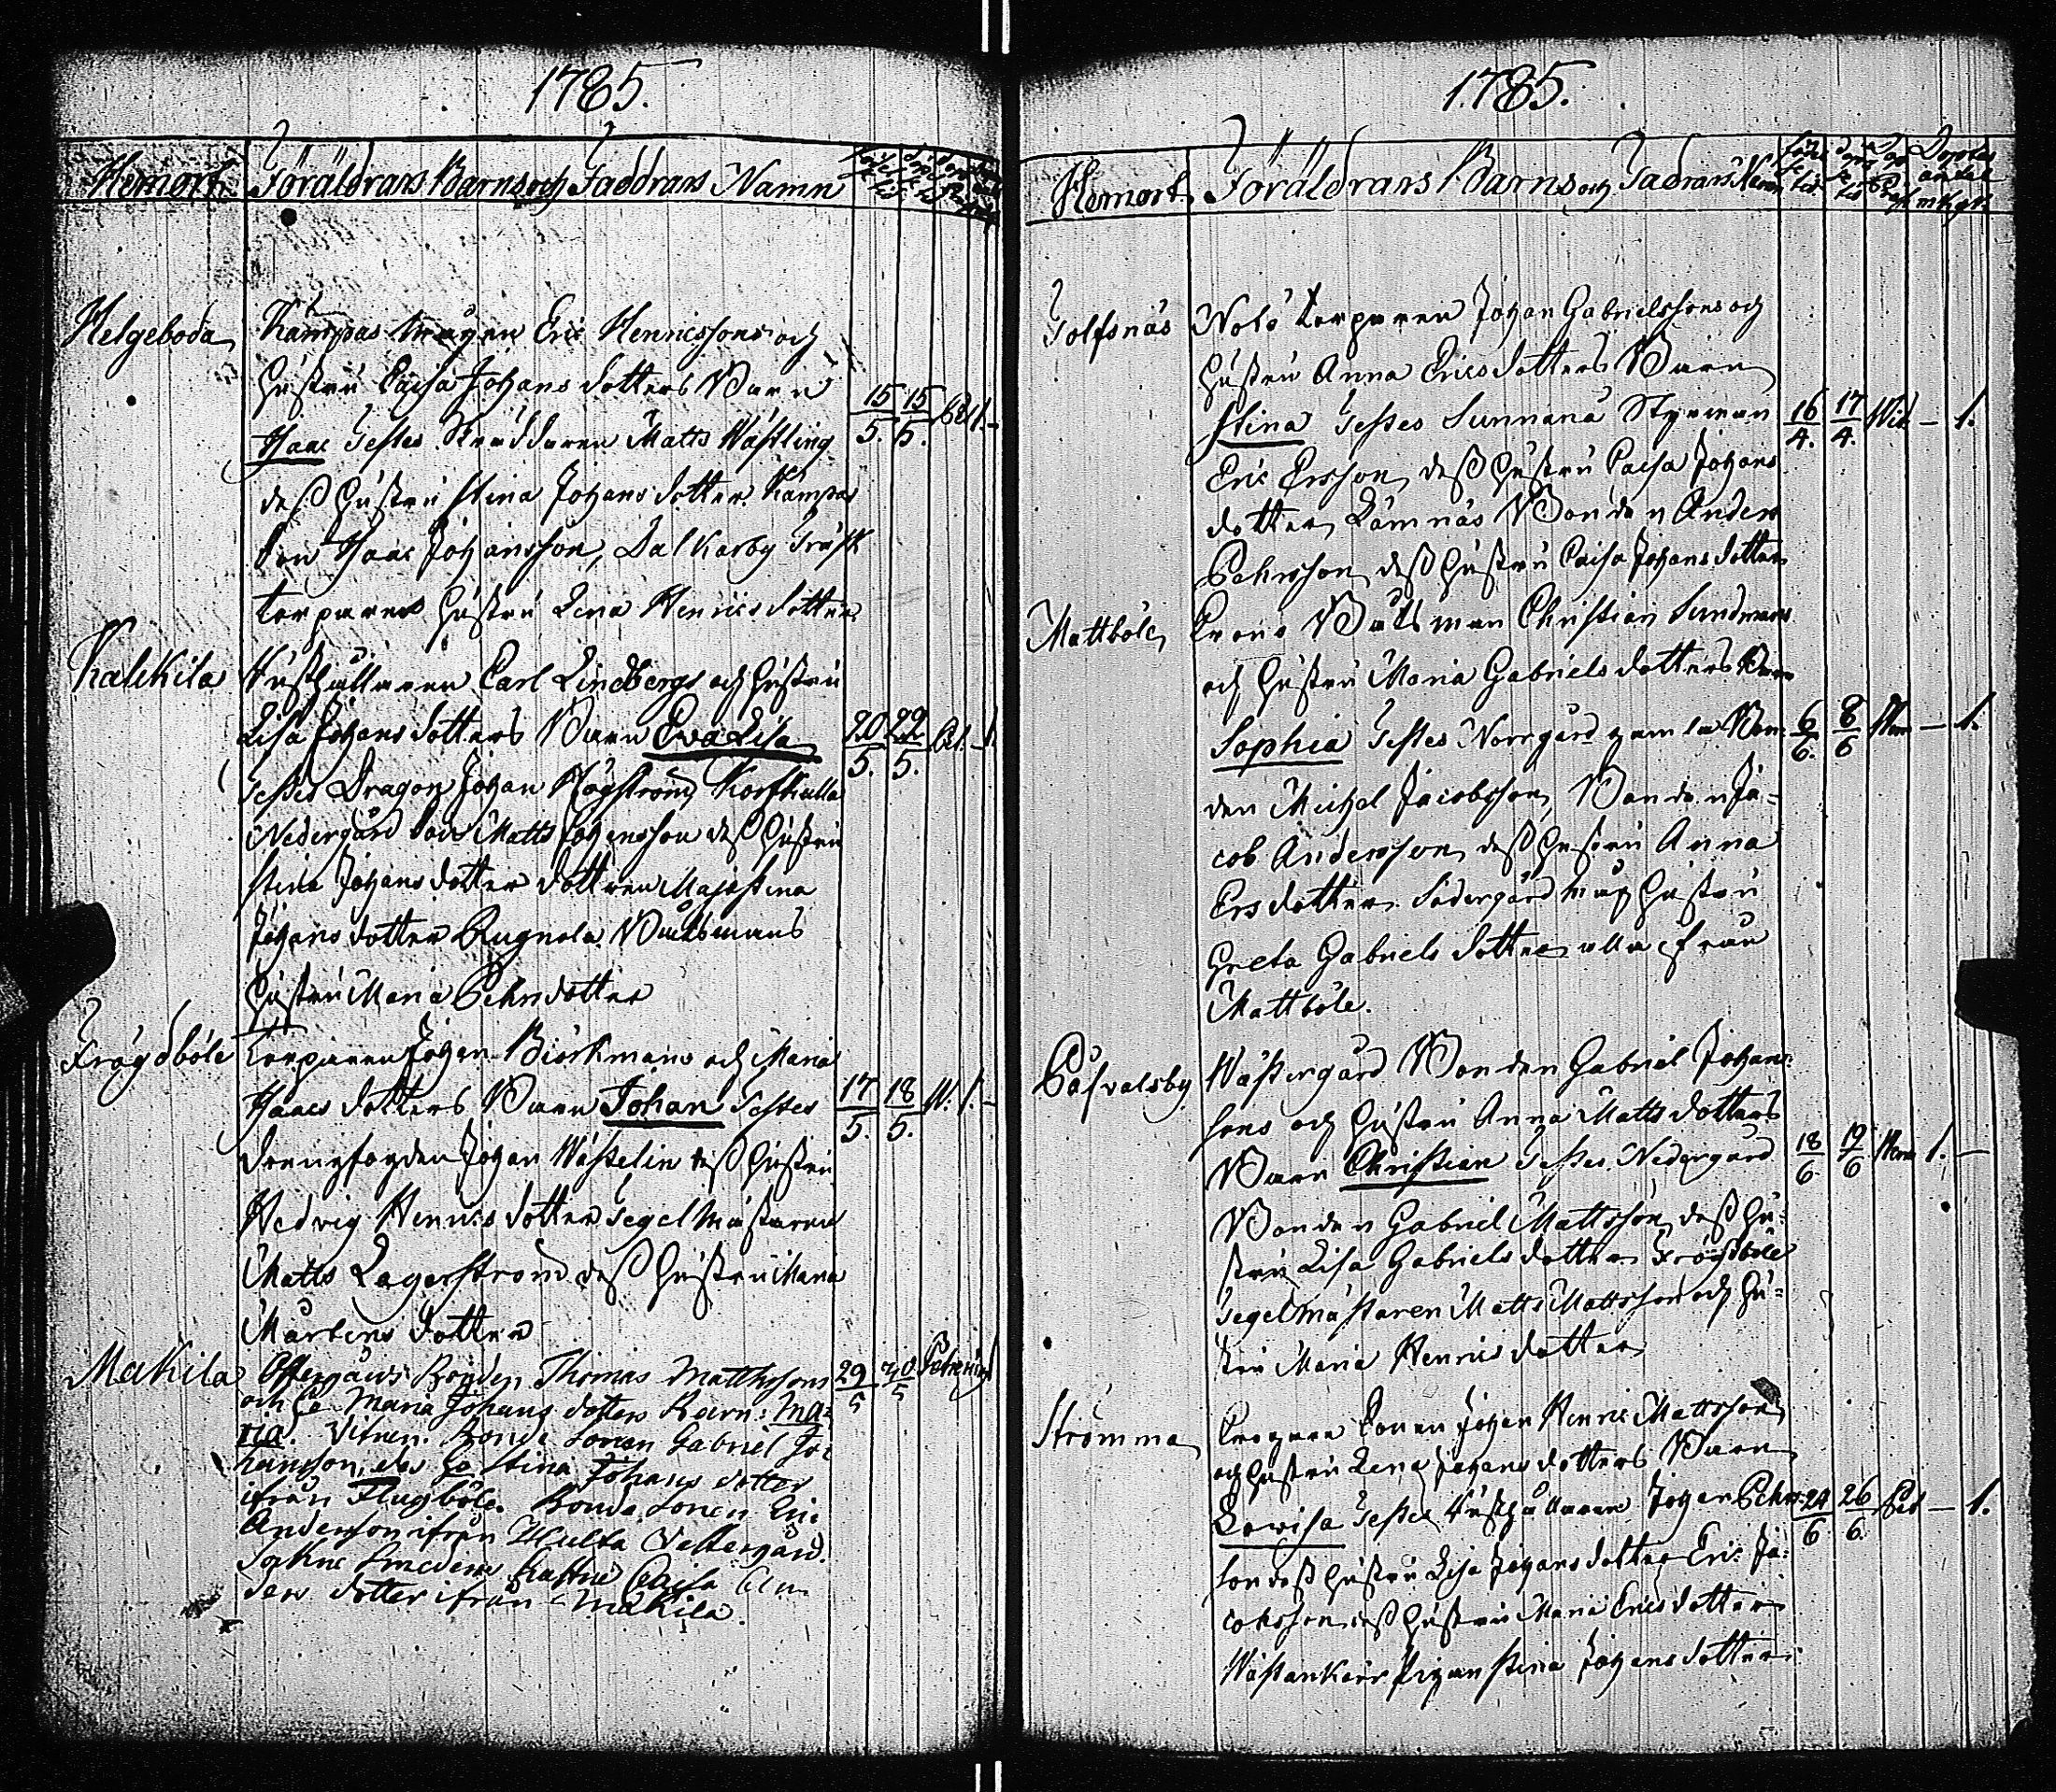 1785.
Hemort. Föräldrars Barns och Faddrars Namn
Helgeboda Kämpas Mågen Eric Henricssons och
hustru Caisa Johans dotters Barn
Isaac Testes Skräddaren Matts Wästling 15/5. 15/5. 1.
dess hustru Stina Johans dotter Kämpas
Son Isaac Johansson, Dalkarby Träsk
torparens hustru Lena Henrics dotter
Kalkila Husthållaren Carl Lindbergs och hustru
Lisa Johans dotters Barn Eva Lisa 20/5. 22/5.
Testes Dragon Johan Högström, Korskulla
Nedergård Matts Johansson dess hustru
Stina Johans dotter dottren Maja Stina
Johans dotter Rugnola Båtsmans
hustru Maria Pehrsdotter
Frögdböle torparen Johan Biörkmans och Maria
Isaacs dotters Barn Johan Testes 17/5. 18/5. W. 1. -
Drengfogden Johan Wästelin dess hustru
Hedvig Henrics dotter Segelmästaren
Matts Lagerström dess hustru Maria
Mårtens dotter
Makila Öffergårds Bonden Thomas Matthssons 29/5 30/5
och h. Maria Johans dotters Barn: Ma-
ria. Vitnen. Bonde Sonen Gabriel Jo-
hansson, des h. Stina Johans dotter
ifrån Flugböle. Bonde Sonen Eric
Andersson ifrån Hulta Vestergård.
Sokne Smedens hustru Caisa An-
ders dotter ifrån Makila.
1785.
Hemort. Föräldrars Barns och Fadrars Namn
Tolfsnäs Notö torparen Johan Gabrielssons och
hustru Anna Erics dotters Barn
Stina Testes Sunnanå Styrman 16/4. 17/4. Wid - 1.
Eric Ersson, dess hustru Caisa Johans
dotter, Lämnäs Bonden Anders
Pehrsson dess hustru Caisa Johans dotter
Mattböle, Crono Båtsman Christian Sundmans
och hustru Maria Gabriels dotters Barn
Sophia Testes Norrgård gamla Bon- 6/6. 8/6 - 1.
den Michel Jacobsson, Bonden Ja-
cob Andersson dess hustru Anna
Ersdotter. Södergård Måg hustru
Greta Gabriels dotter alla ifrån
Mattböle.
Påfvalsby Wästergård Bonden Gabriel Johans-
sons och hustru Anna Matts dotters
Barn Christian Testes Nedergård 18/6. 19/6 1. -
Bonden Gabriel Mattsson, dess hu-
stru Lisa Gabriels dotter Frögdböle
Segelmästaren Matts Mattsson och hu-
stru Maria Henrics dotter
Strömma Johan Henric Mattsson
och hustru Lena Johans dotters Barn
Lovisa Testes Husthållaren Johan Pehrs- 24/6 26/6. Ped - 1.
son dess hustru Lisa Johans dotter Eric Ja-
cobsson dess hustru Maria Erics dotter
Wästankärr pigan Stina Johans dotter